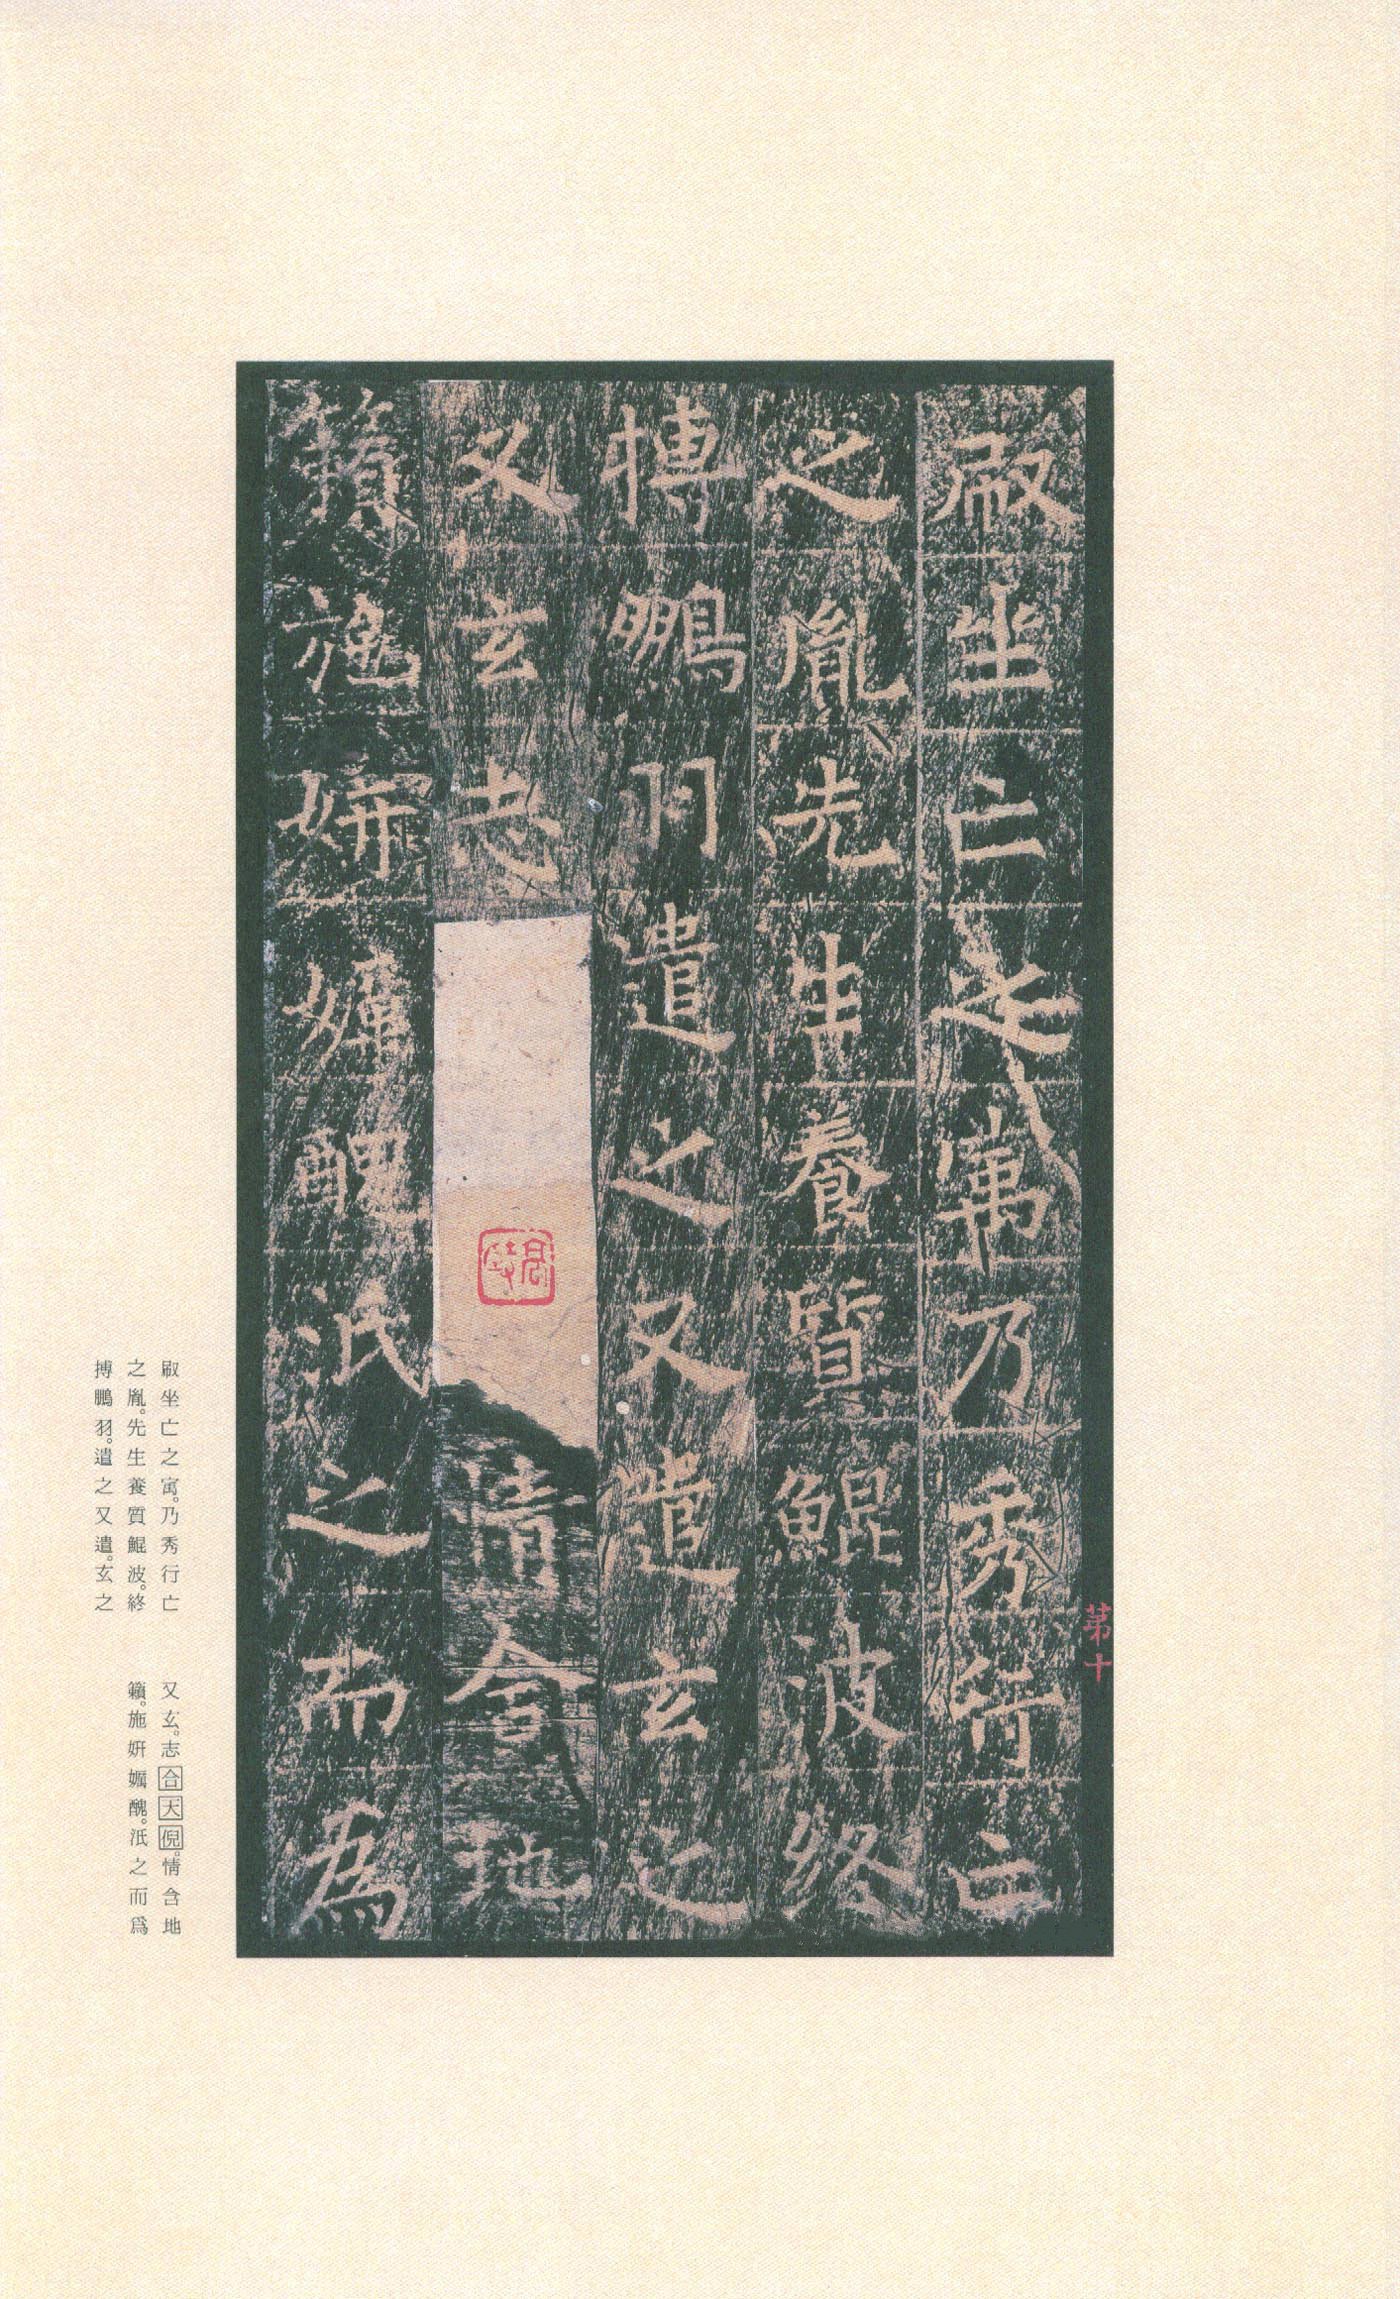 㕞坐亡之寓乃秀行亡
之胤先生養質鯤波終
搏鵬羽遣之又遣玄之
又玄志情含地
籟施妍孋醜汦之而為
第十
㕞坐亡之寓。乃秀行亡
之胤。先生養質鯤波。終
搏鵬羽。遣之又遣。玄之
又玄。志合天倪。情含地
籟。施妍孋醜。汦之而爲